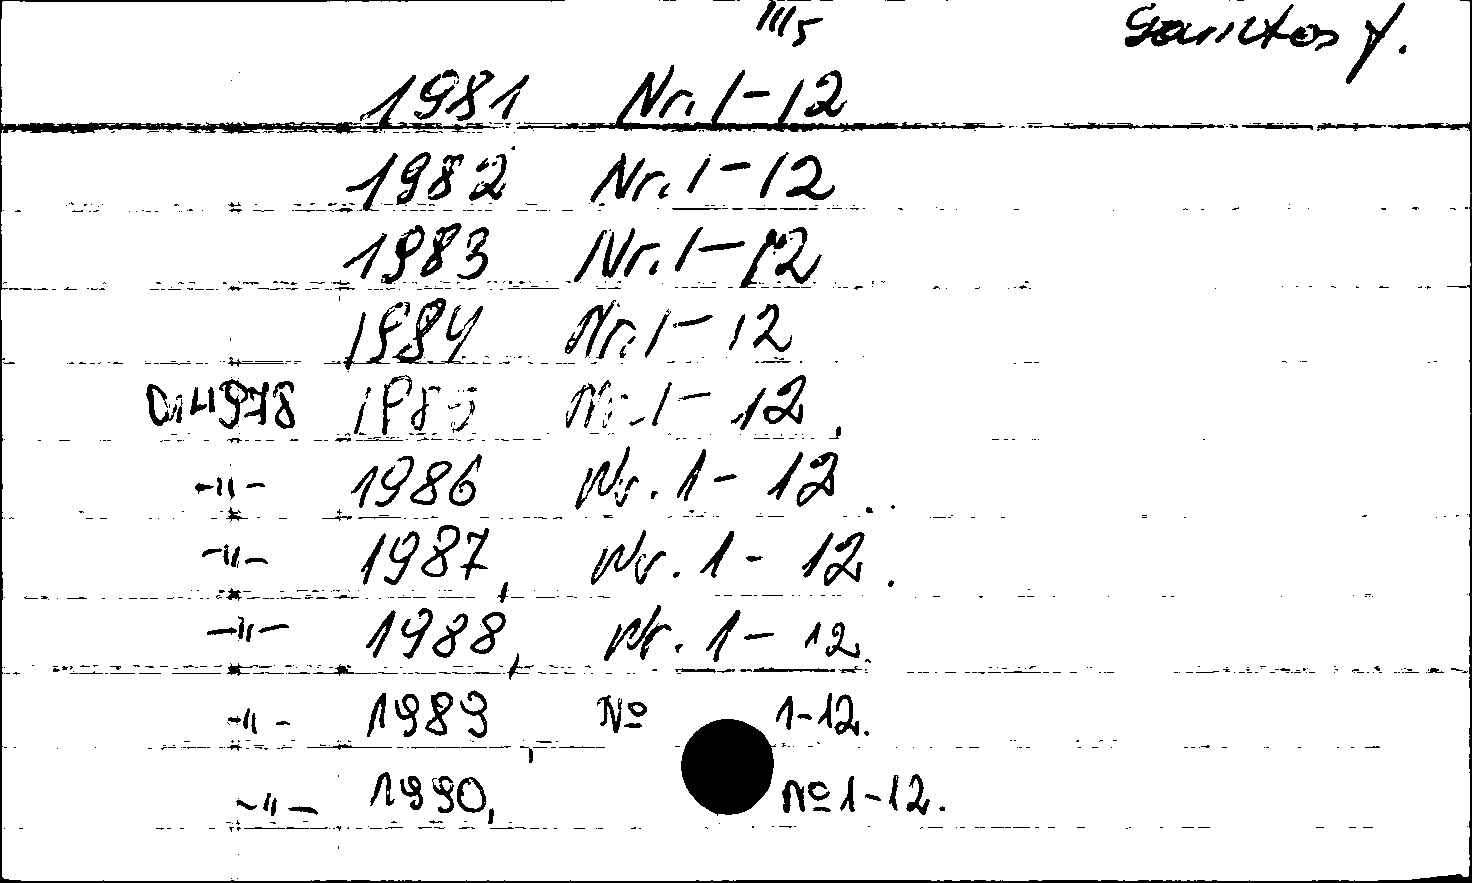 III5
1981 Nr. 1-12
1982 Nr. 1-12
1983 Nr. 1-12
1984 Nr. 1-12
1985 Nr. 1-12.
-"- 1986 Nr. 1-12.
-"- 1987, Nr. 1-12.
-"- 1988, Nr. 1-12.
-"- 1989, № 1-12.
-"- 1990, № 1-12.